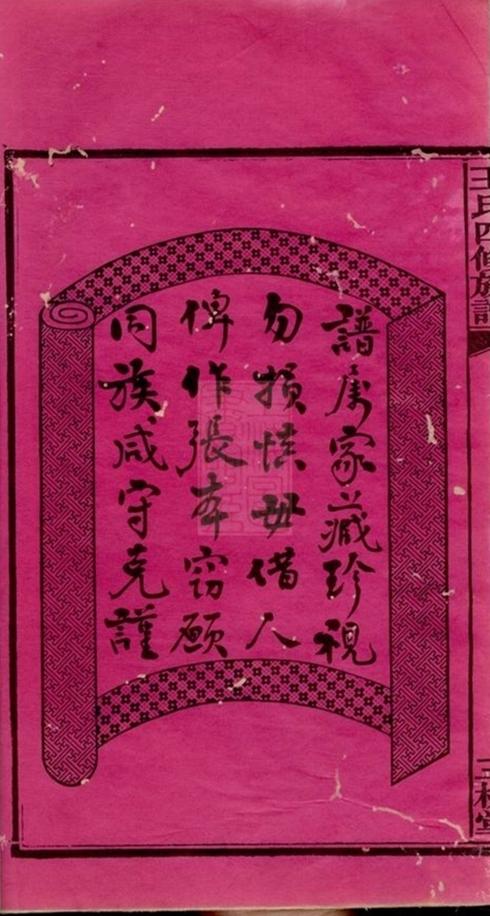 王氏四修族譜
譜屬家藏珍視
勿損慎毋借人
俾作張本窃願
同族咸守克謹
三槐堂